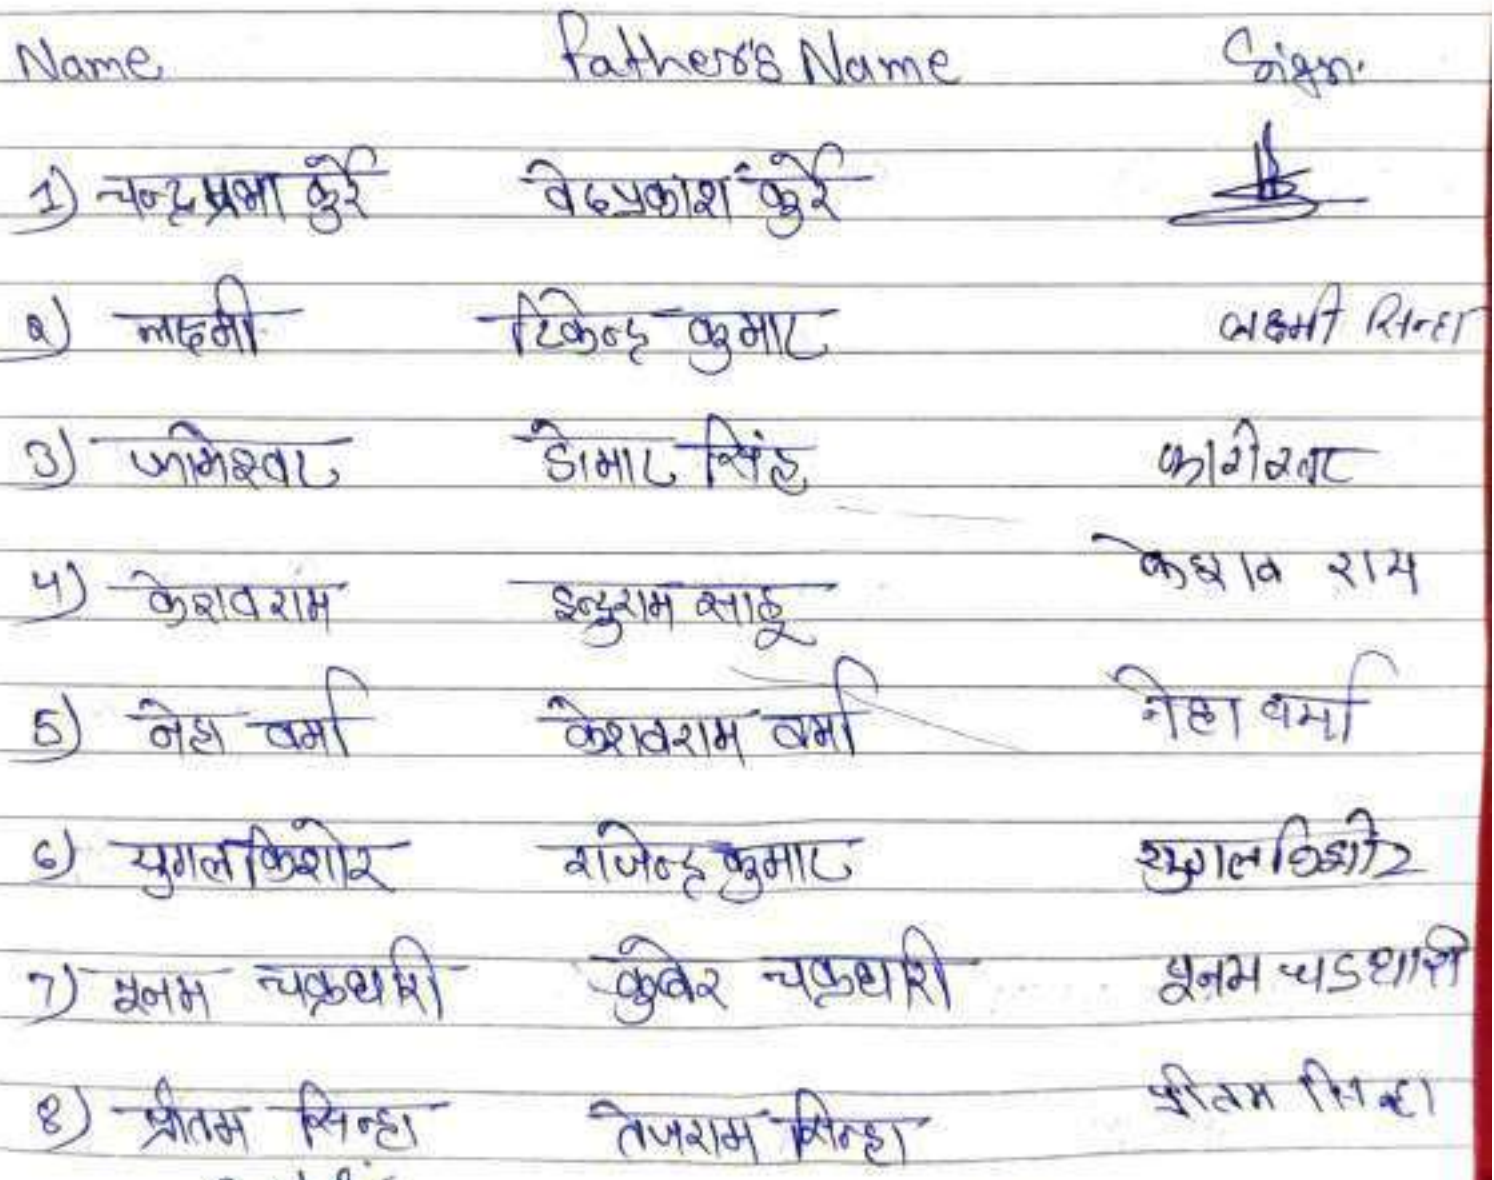 Name Father's Name Sign.
1) चन्द्रप्रभा कुर्रे वेदप्रकाश कुर्रे
2) लक्ष्मी टिकेन्द्र कुमार लक्ष्मी सिन्हा
3) कामेश्वर डोमार सिंह
4) केशवराम इन्दुराम साहू केशव राम
5) नेहा वर्मा केशवराम वर्मा नेहा वर्मा
6) युगलकिशोर राजेन्द्र कुमार युगलकिशोर
7) पूनम चक्रधारी कुबेर चक्रधारी पूनम चक्रधारी
8) प्रीतम सिन्हा तेजराम सिन्हा प्रीतम सिन्हा